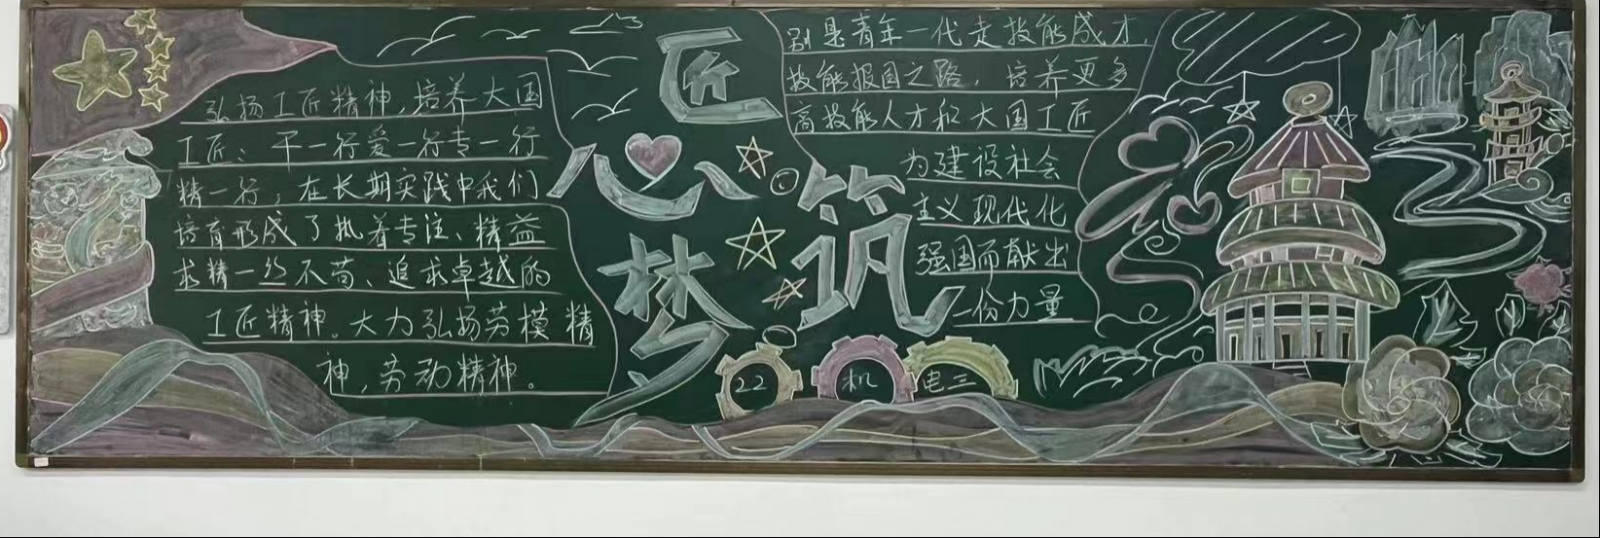 弘扬工匠精神,培养大国
工匠:干一行爱一行专一行
精一行,在长期实践中我们
培育形成了执着专注、精益
求精一丝不苟、追求卓越的
工匠精神。大力弘扬劳模精
神,劳动精神。
匠
心
筑
梦
别是青年一代走技能成才,
技能报国之路,培养更多
高技能人才和大国工匠
为建设社会
主义现代化
强国而献出
一份力量
22
机
电三